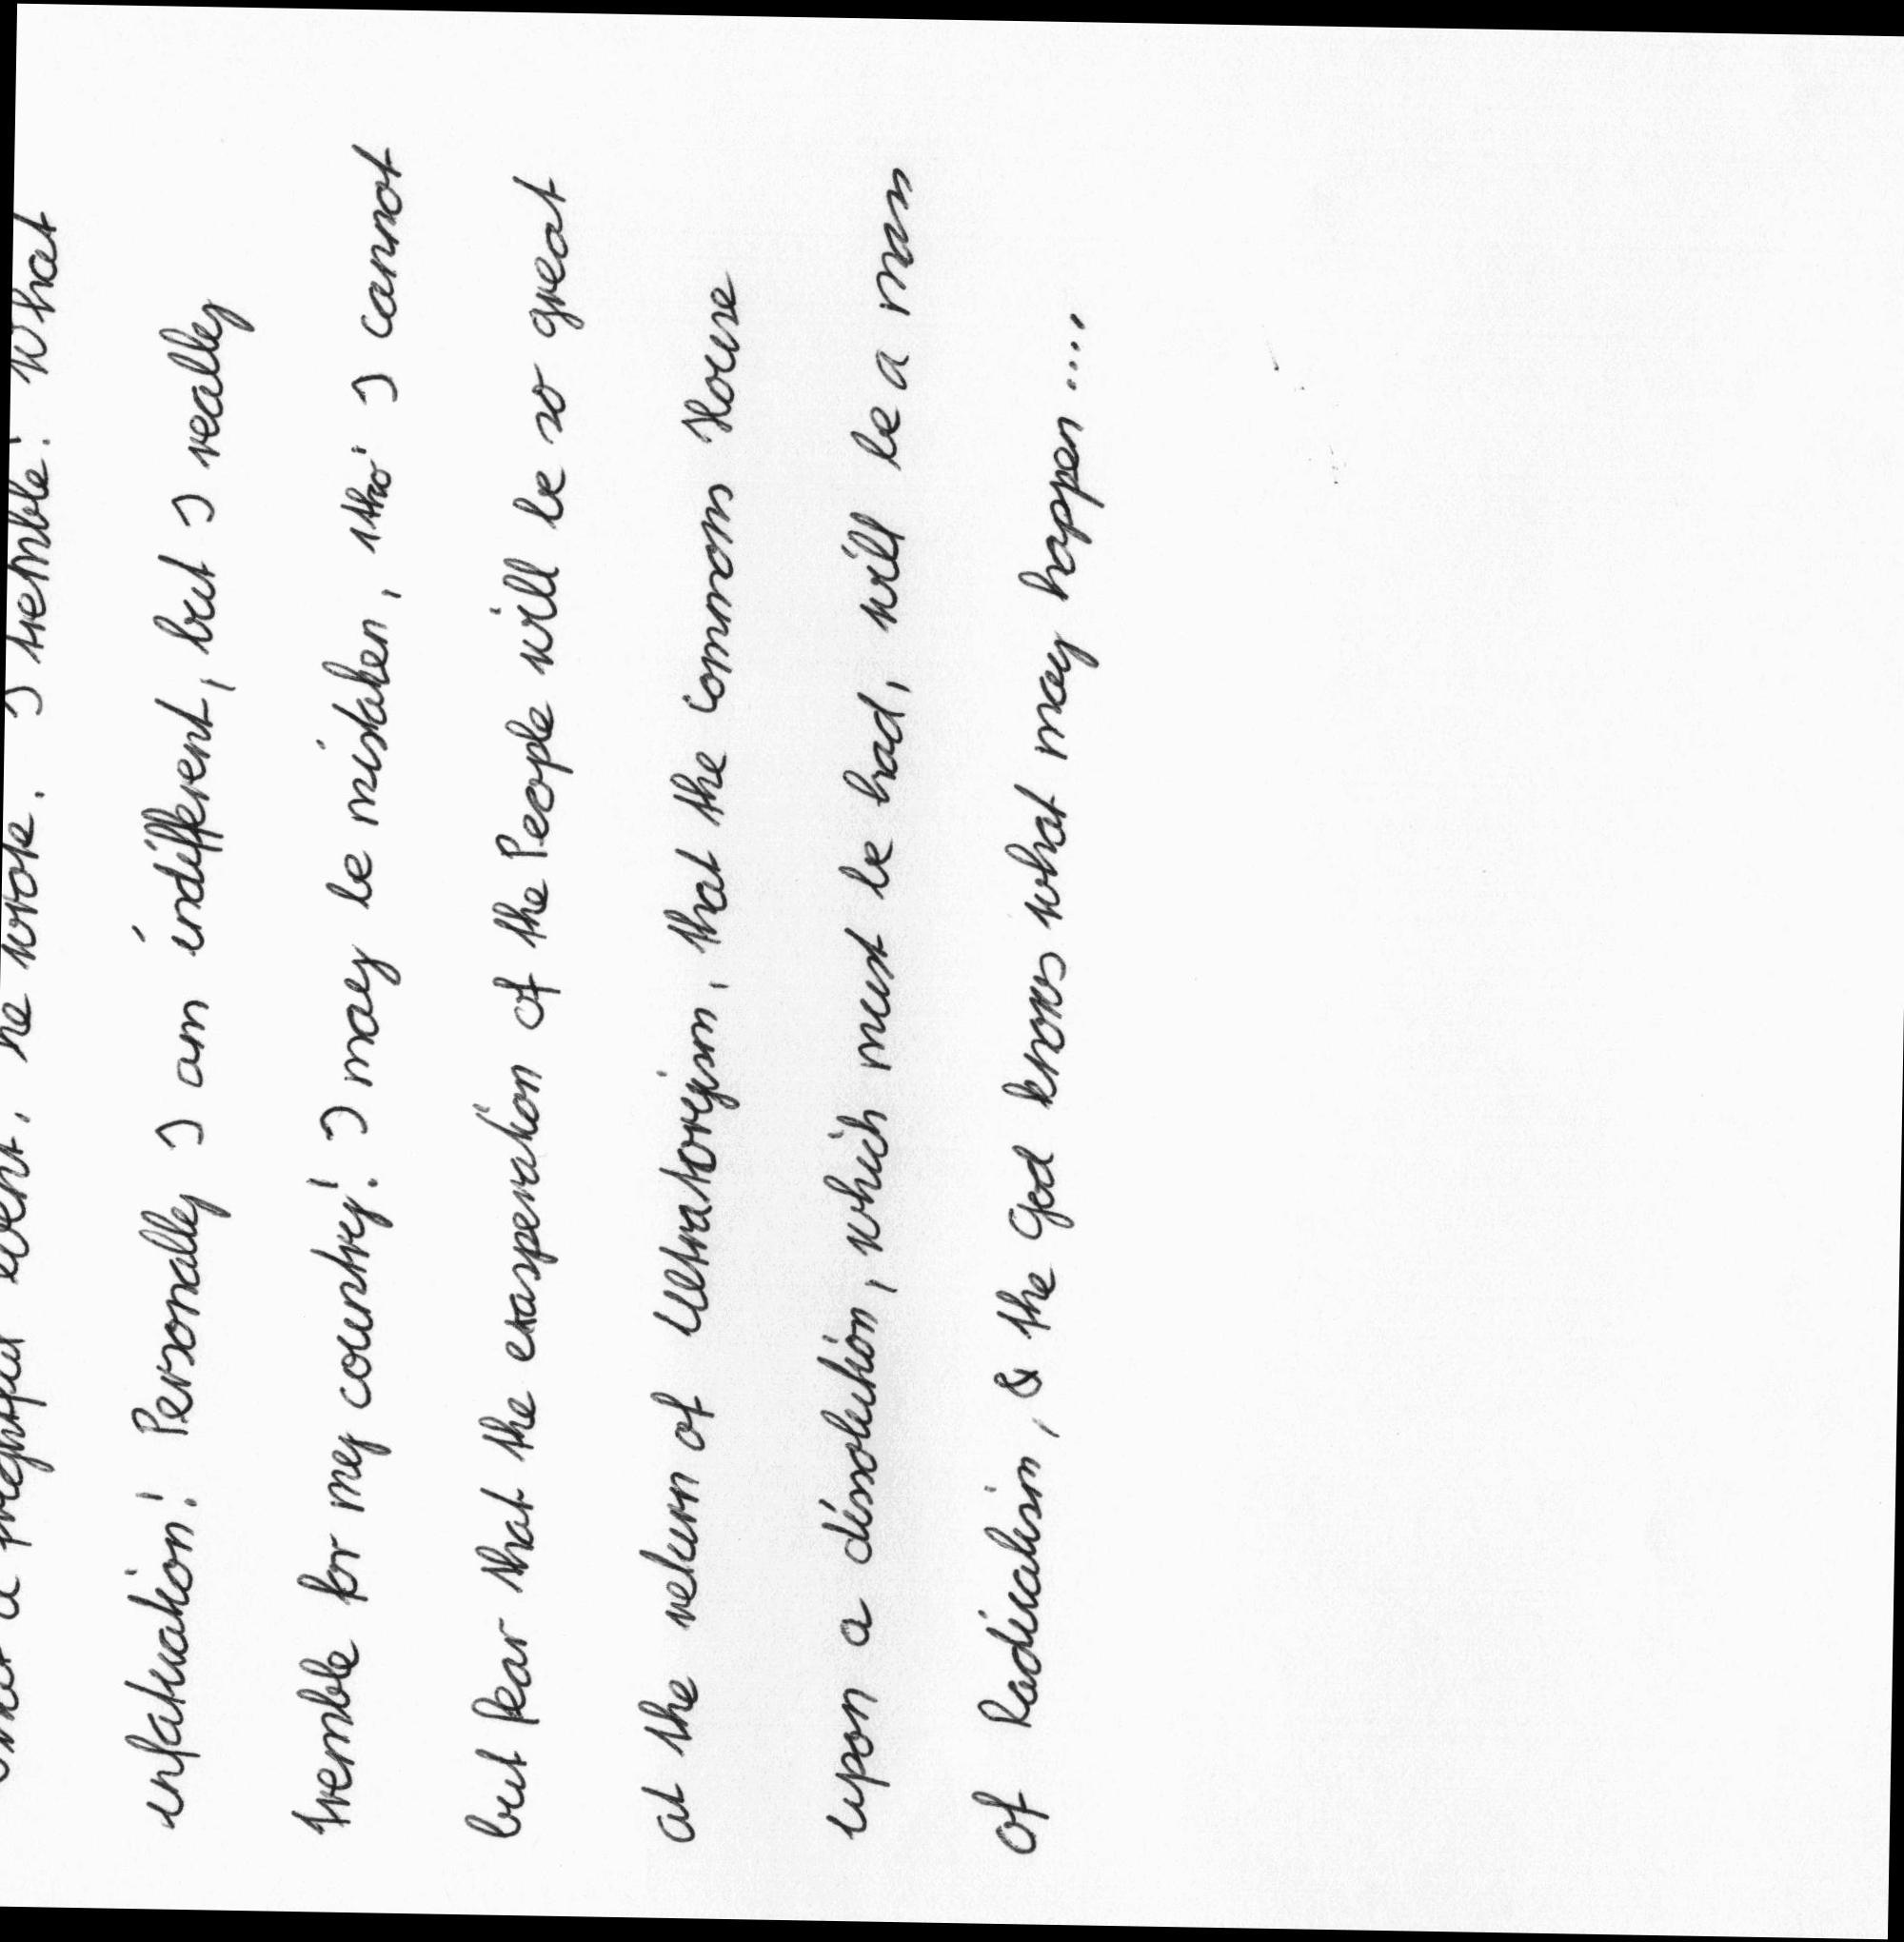 a frightful event, he wrote. I tremble! What
infatuation! Personally I am indifferent, but I really
tremble for my country! I may be mistaken, tho' I cannot
but fear that the exasperation of the People will be so great
at the return of Ultratoryism, that the Commons House
upon a dissolution, which must be had, will be a mass
of Radicalism, & the God knows what may happen....